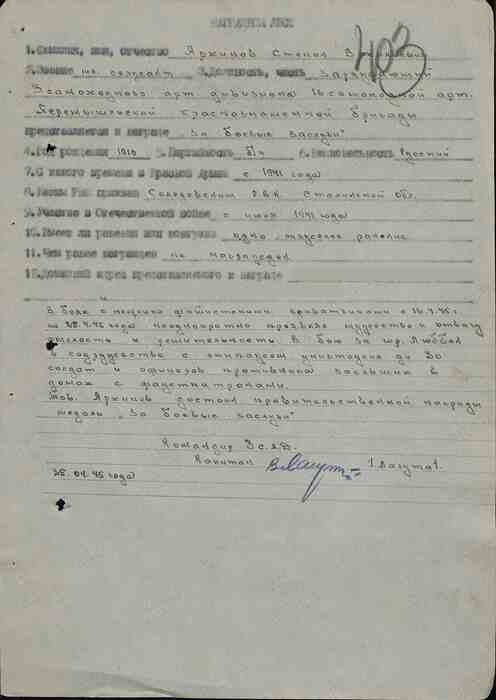 НАГРАДНОЙ ЛИСТ
403
1.Фамилия, имя, отчество Яркинов Степан
2.Звание мл. сержант 3.Должность, часть Заряжающий
3 самоходного арт дивизиона 16 самоходной арт.
Перемышльской Краснознаменной бригады
представляется к награде "За боевые заслуги"
4.Год рождения 1919 5.Партийность б/п 6.Национальность русский
7.С какого времени в Красной Армии с 1941 года
8.Каким РВК призван РВК Сталинской обл.
9.Участие в Отечественной войне с июля 1941 года
10.Имеет ли ранения или контузии одно тяжелое ранение
11.Чем ранее награжден не награжден
12.Домашний адрес представляемого к награде
В боях с немецко фашистскими захватчиками с 16.4.45г.
по 25.4.45 года неоднократно проявлял мужество и отвагу
смелость и решительность. В бою за гор. Люббен
в содружестве с экипажем уничтожено до 30
солдат и офицеров противника засевших в
домах с фаустпатронами.
Тов. Яркинов достоин правительственной награды
медаль "За боевые заслуги"
Командир 3 с.а.д.
Капитан /Лагута/.
25.04.45 года